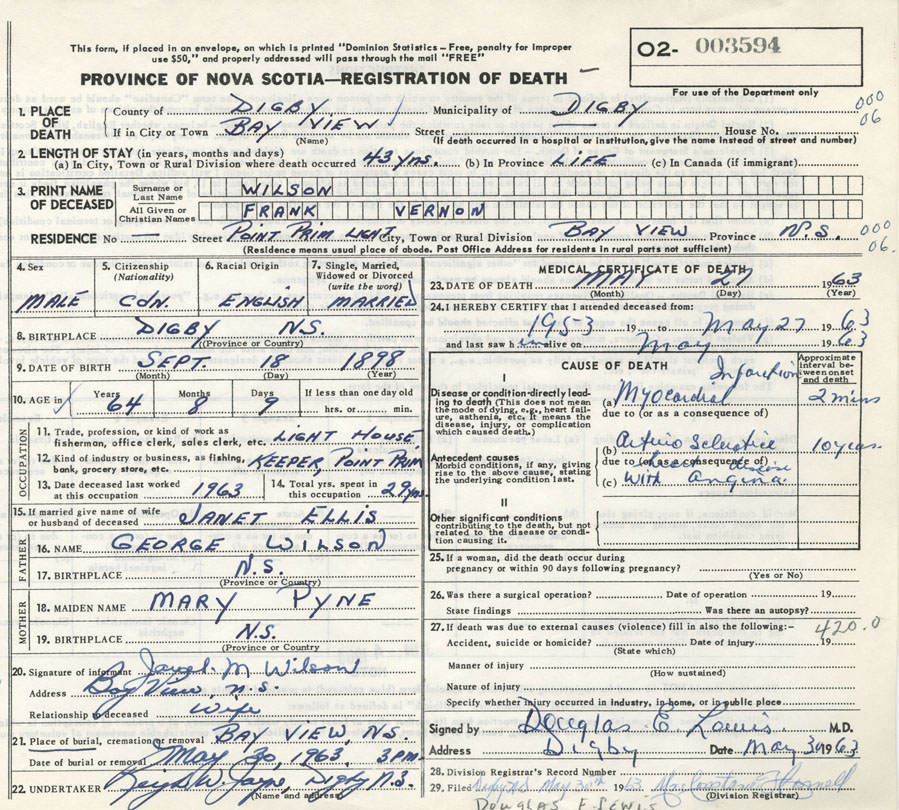 This form, if placed in an envelope, on which is printed "Dominion Statistics – Free, penalty for improper
use $50," and properly addressed will pass through the mail "FREE"
PROVINCE OF NOVA SCOTIA—REGISTRATION OF DEATH
O2- 003594
For use of the Department only
1. PLACE OF DEATH
County of DIGBY Municipality of DIGBY
000
06
If in City or Town BAY VIEW Street House No.
(Name) (If death occurred in a hospital or institution, give the name instead of street and number)
2. LENGTH OF STAY (in years, months and days)
(a) In City, Town or Rural Division where death occurred 43 yrs. (b) In Province LIFE (c) In Canada (if immigrant)
3. PRINT NAME OF DECEASED
Surname or Last Name WILSON
All Given or Christian Names FRANK VERNON
RESIDENCE No — Street POINT PRIM LIGHT City, Town or Rural Division BAY VIEW Province N.S.
000
06.
(Residence means usual place of abode. Post Office Address for residents in rural parts not sufficient)
4. Sex
MALE
5. Citizenship
(Nationality)
CDN.
6. Racial Origin
ENGLISH
7. Single, Married,
Widowed or Divorced
(write the word)
MARRIED
8. BIRTHPLACE DIGBY N.S.
(Province or Country)
9. DATE OF BIRTH SEPT. 18 1898
(Month) (Day) (Year)
10. AGE in Years Months Days If less than one day old
64 8 9 hrs. or min.
OCCUPATION
11. Trade, profession, or kind of work as
fisherman, office clerk, sales clerk, etc. LIGHT HOUSE
12. Kind of industry or business, as fishing,
bank, grocery store, etc. KEEPER, POINT PRIM
13. Date deceased last worked
at this occupation 1963
14. Total yrs. spent in
this occupation 29 yrs.
15. If married give name of wife
or husband of deceased JANET ELLIS
FATHER
16. NAME GEORGE WILSON
17. BIRTHPLACE N.S.
(Province or Country)
MOTHER
18. MAIDEN NAME MARY PYNE
19. BIRTHPLACE N.S.
(Province or Country
20. Signature of informant M Wilson
Address Bay View N.S.
Relationship to deceased Wife
21. Place of burial, cremation or removal BAY VIEW, N.S.
Date of burial or removal May 30, 1963, 3PM.
22. UNDERTAKER W. Digby N.S.
(Name and address)
MEDICAL CERTIFICATE OF DEATH
23. DATE OF DEATH MAY 27 1963
(Month) (Day) (Year)
24. I HEREBY CERTIFY that I attended deceased from:
1953 19 to May 27 1963
and last saw him alive on May 1963
CAUSE OF DEATH
Approximate
interval be-
tween onset
and death
I
Disease or condition directly lead-
ing to death (This does not mean
the mode of dying, e.g., heart fail-
ure, asthenia, etc. It means the
disease, injury, or complication
which caused death.)
(a) Myocardial Infarction 2 mins
due to (or as a consequence of)
Antecedent causes
Morbid conditions, if any, giving
rise to the above cause, stating
the underlying condition last.
(b) Arterio Sclerotic 10 years
due to (or as a consequence of)
(c) with Angina
II
Other significant conditions
contributing to the death, but not
related to the disease or condi-
tion causing it.
25. If a woman, did the death occur during
pregnancy or within 90 days following pregnancy?
(Yes or No)
26. Was there a surgical operation? Date of operation 19
State findings Was there an autopsy?
27. If death was due to external causes (violence) fill in also the following:–
420.0
Accident, suicide or homicide? Date of injury 19
(State which)
Manner of injury
(How sustained)
Nature of injury
Specify whether injury occurred in industry, in home, or in public place
Signed by Douglas E. Lewis M.D.
Address Digby Date May 30 1963
28. Division Registrar's Record Number
29. Filed May 30th 1963
(Division Registrar)
DOUGLAS E LEWIS